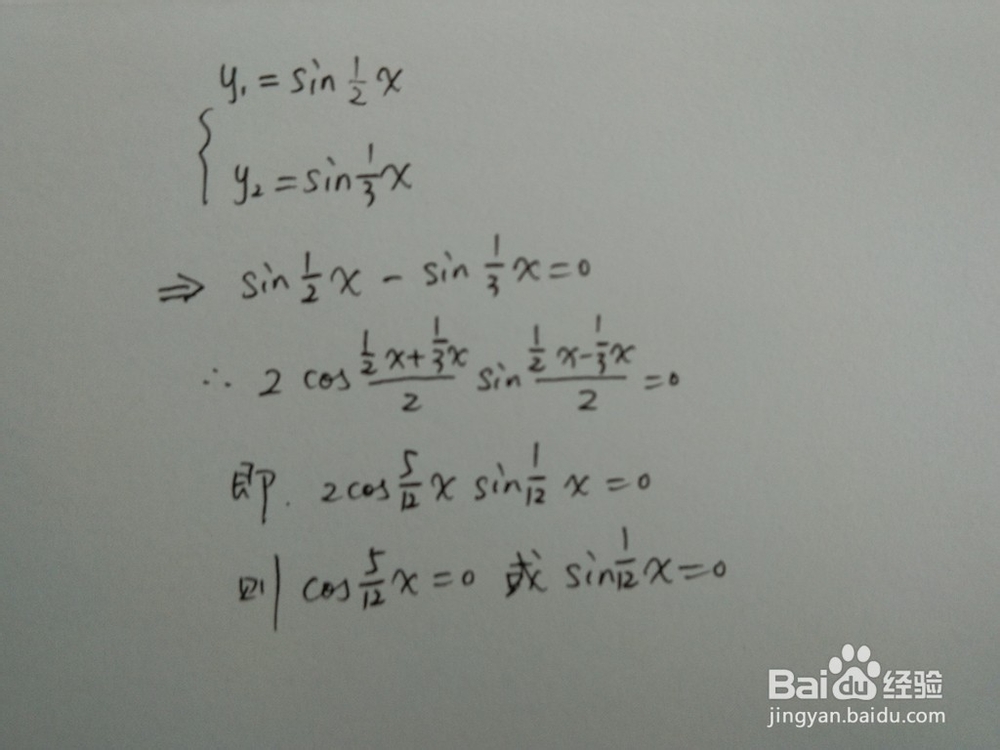 y₁ = sin ½ x
y₂ = sin ⅓ x
⇒ sin ½ x - sin ⅓ x = 0
∴ 2 cos (½x + ⅓x)/2 sin (½x - ⅓x)/2 = 0
即. 2cos 5/12 x sin 1/12 x = 0
则 cos 5/12 x = 0 或 sin 1/12 x = 0
Baidu 经验
jingyan.baidu.com